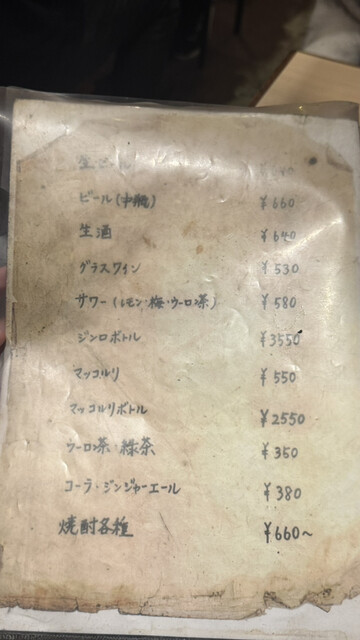 ビール(中瓶) ¥660
生酒 ¥640
グラスワイン ¥530
サワー(レモン・梅・ウーロン茶) ¥580
ジンロボトル ¥3550
マッコルリ ¥550
マッコルリボトル ¥2550
ウーロン茶・緑茶 ¥350
コーラ・ジンジャーエール ¥380
焼酎各種 ¥660~